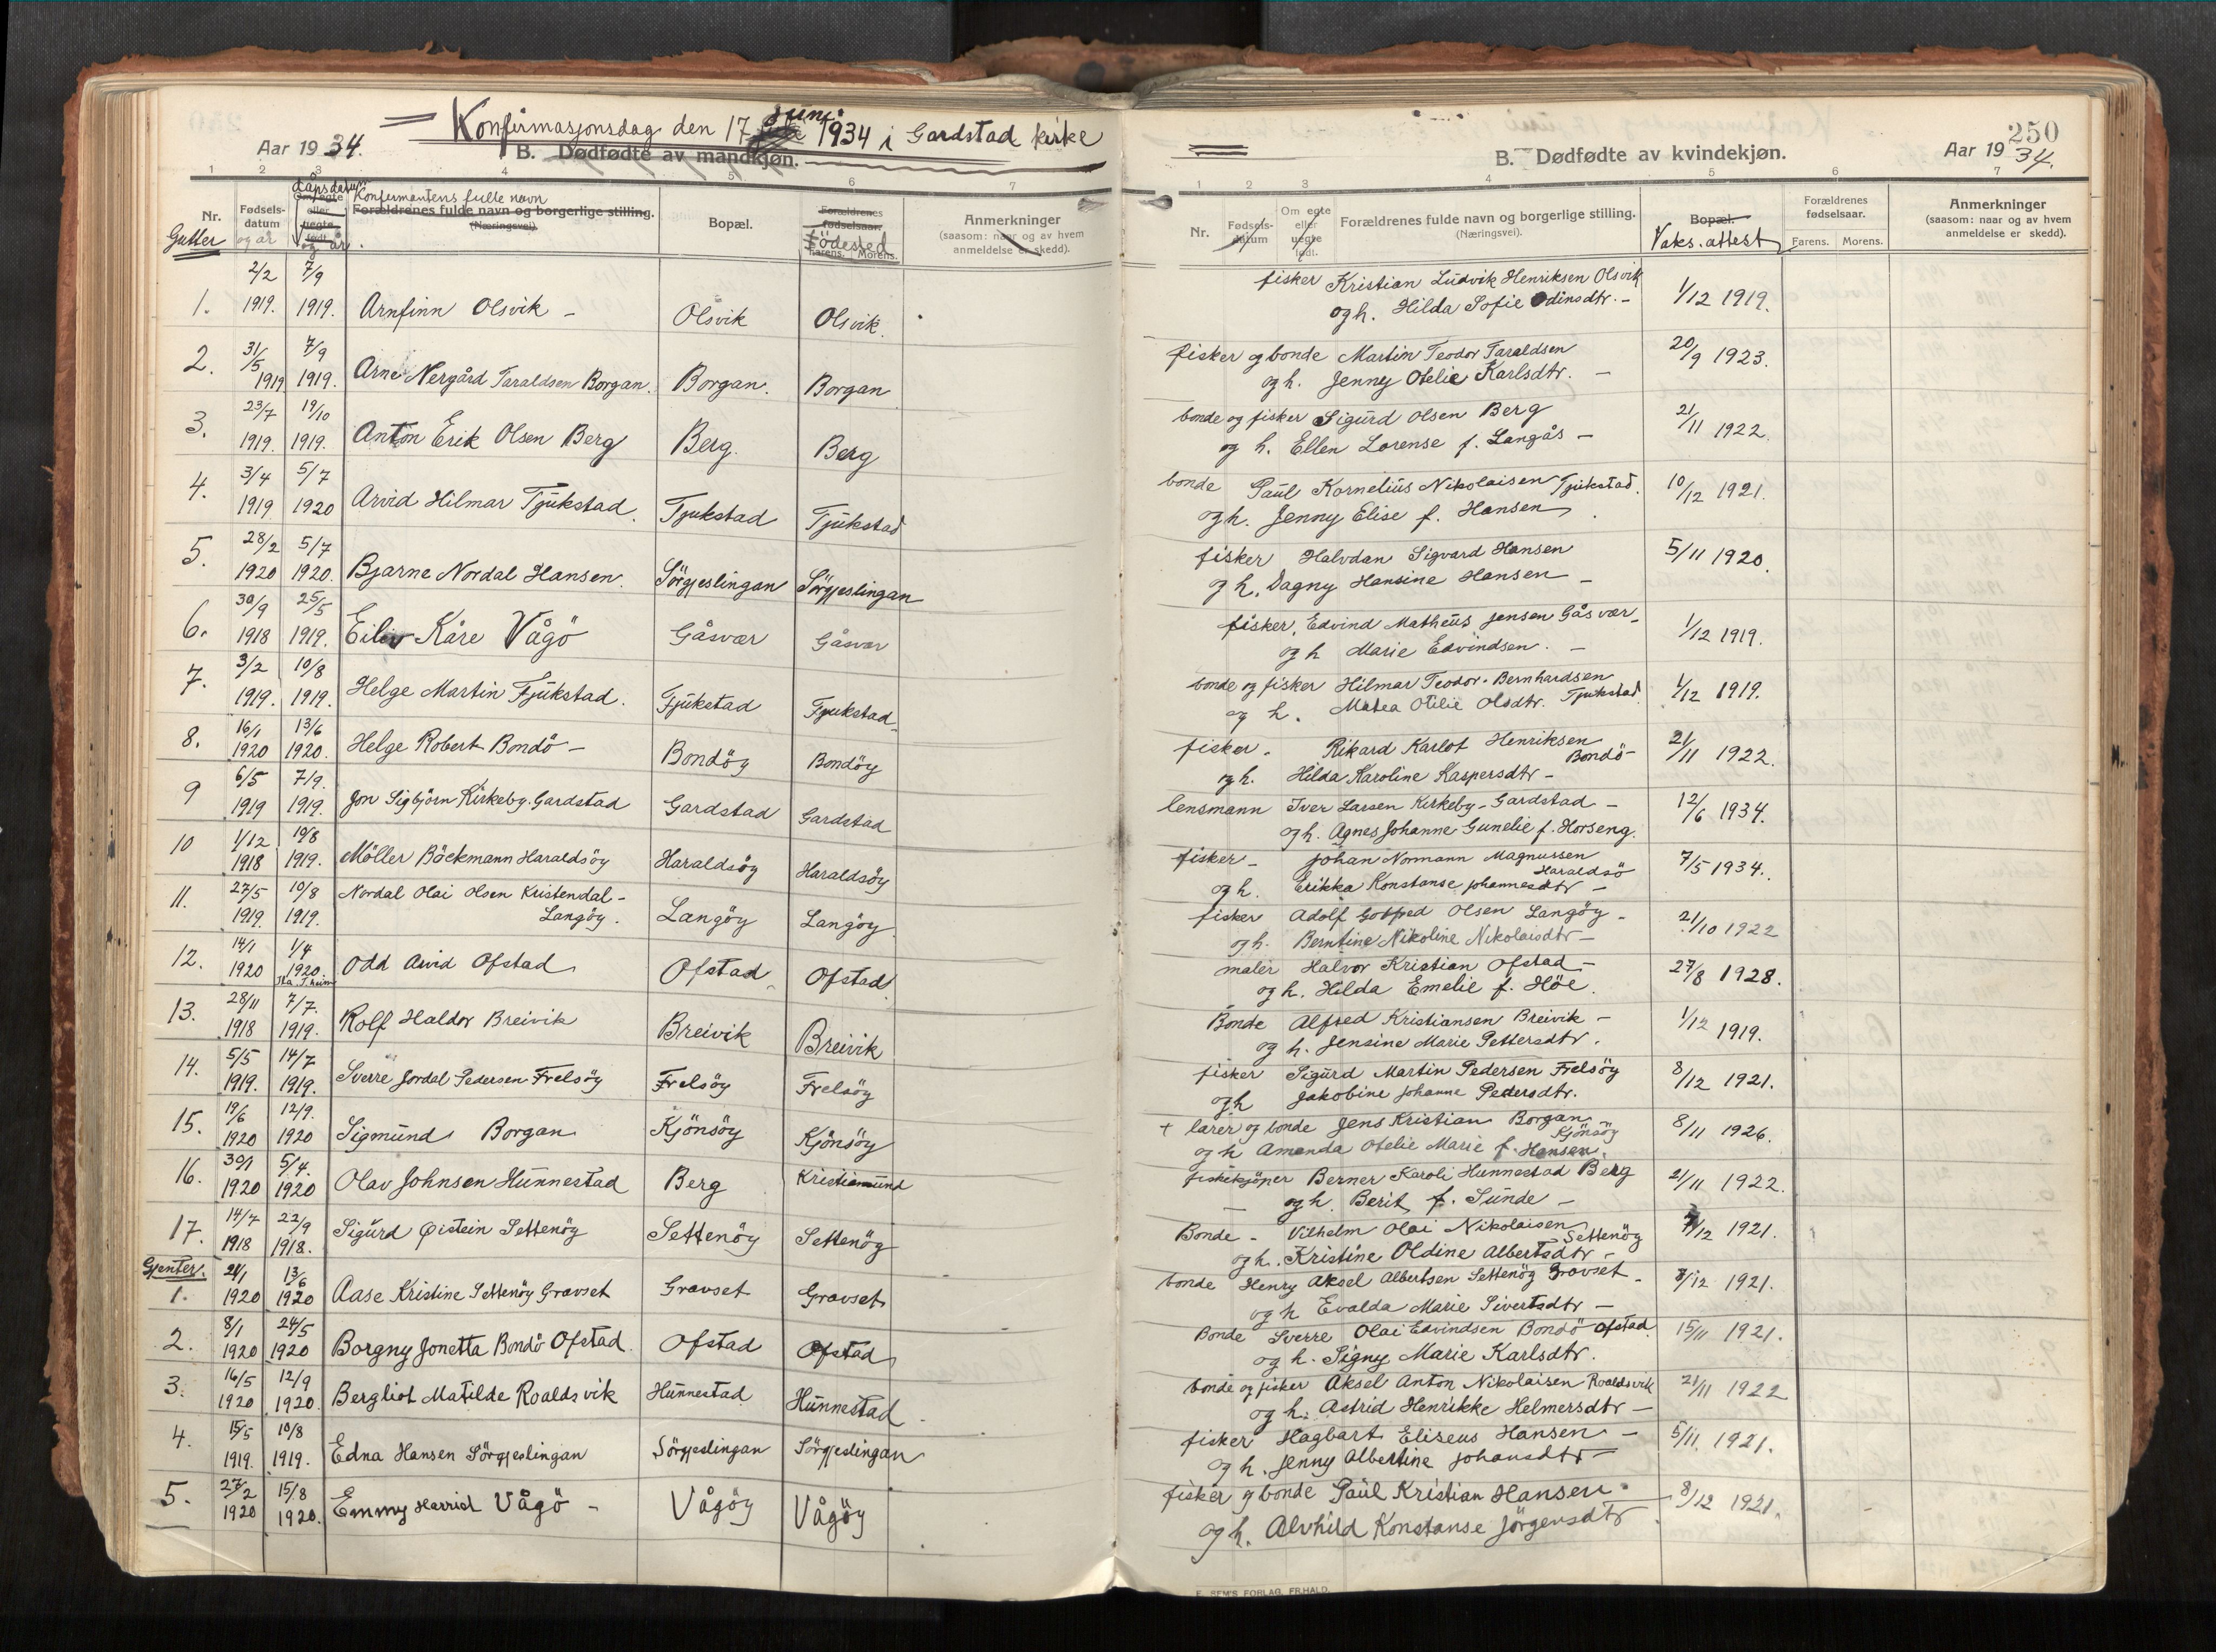 Konfirmasjonsdag den 17 juni 1934 i Gardstad kirke
Aar 1934.
B. Dødfødte av mandkjøn.
1 2 3 4 5 6 7
Nr.
Gutter
Fødsels-
datum
og år
dåpsdatum
Om egte
eller
uegte
født.
og år.
Konfirmantens fulle navn
Forældrenes fulde navn og borgerlige stilling.
(Næringsvei).
Bopæl.
Forældrenes
fødselsaar.
Födested
Farens. Morens.
Anmerkninger
(saasom: naar og av hvem
anmeldelse er skedd).
1. 2/2 1919. 7/9 1919. Arnfinn Olsvik – Olsvik Olsvik.
2. 31/5 1919 7/9 1919. Arne Nergård Taraldsen Borgan. Borgan. Borgan
3. 23/7 1919. 19/10 1919. Anton Erik Olsen Berg Berg. Berg
4. 3/4 1919 5/7 1920 Arvid Hilmar Tjukstad. Tjukstad Tjukstad
5. 28/2 1920 5/7 1920. Bjarne Nordal Hansen. Sörgjeslingan Sörgjeslingan
6. 30/9 1918 25/5 1919. Eiliv Kåre Vågö Gåsvær Gåsvær
7. 3/2 1919. 10/8 1919. Helge Martin Tjukstad. Tjukstad Tjukstad
8. 16/1 1920 13/6 1920. Helge Robert Bondö – Bondöy Bondöy
9 6/5 1919 7/9. 1919. Jon Sigbjörn Kirkeby-Gardstad Gardstad Gardstad
10 1/12 1918 10/8 1919. Möller Böckmann Haraldsöy Haraldsöy Haraldsöy
11. 27/5 1919. 10/8 1919. Nordal Olai Olsen Kristendal –
Langöy. Langöy Langöy
12. 14/1 1920 1/4 1920. Odd Arvid Ofstad Ofstad Ofstad
13. 28/11 1918 7/7. 1919. Rolf Haldor Breivik Breivik Breivik
14. 5/5 1919. 14/7 1919. Sverre Jordal Pedersen Frelsöy Frelsöy Frelsöy
15. 19/6 1920 12/9. 1920 Sigmund Borgan Kjönsöy Kjönsöy
16. 30/1 1920 5/4. 1920 Olav Johnsen Hunnestad Berg Kristiansund
17. 14/7 1918 22/9 1918. Sigurd Øistein Settenöy Settenöy Settenöy
Gjenter.
1. 24/1 1920 13/6 1920 Aase Kristine Settenöy Gravset Gravset Gravset
2. 8/1 1920 24/5 1920 Borgny Jonetta Bondö Ofstad. Ofstad Ofstad
3. 16/5 1920 12/9 1920. Bergliot Matilde Roaldsvik Hunnestad Hunnestad
4. 15/5 1919. 10/8 1919. Edna Hansen Sörgjeslingan Sörgjeslingan Sörgjeslingan
5. 27/2 1920 15/8 1920. Emmy Harrid Vågö – Vågöy Vågöy
250
B. Dødfødte av kvindekjøn.
Aar 1934.
1 2 3 4 5 6 7
Nr.
Fødsels-
datum
Om egte
eller
uegte
født.
Forældrenes fulde navn og borgerlige stilling.
(Næringsvei).
Bopæl.
Vaks. attest
Forældrenes
fødselsaar.
Farens. Morens.
Anmerkninger
(saasom: naar og av hvem
anmeldelse er skedd).
fisker Kristian Ludvik Henriksen Olsvik
og h. Hilda Sofie Odinsdtr. – 1/12 1919.
fisker og bonde Martin Teodor Taraldsen
og h. Jenny Otelie Karlsdtr. – 20/9 1923.
bonde og fisker Sigurd Olsen Berg
og h. Ellen Lorense f. Langås – 21/11 1922.
bonde Paul Kornelius Nikolaisen Tjukstad.
og h. Jenny Elise f. Hansen. 10/12 1921.
fisker Halvdan Sigvard Hansen
og h. Dagny Hansine Hansen – 5/11 1920.
fisker. Edvind Matheus Jensen Gåsvær –
og h Marie Edvindsen. – 1/12 1919.
bonde og fisker Hilmar Teodor Bernhardsen
og h. Matea Otilie Olsdtr. Tjukstad. 1/12 1919.
fisker. Rikard Karlot Henriksen
Bondö –
og h. Hilda Karoline Kaspersdtr – 21/11 1922.
lensmann Iver Larsen Kirkeby-Gardstad –
og h. Agnes Johanne Gunelie f. Horseng. 12/6 1934.
fisker – Johan Normann Magnussen
Haraldsö
og h. Erikka Konstanse Johannesdtr – 7/5 1934.
fisker Adolf Gotfred Olsen Langöy –
og h. Berntine Nikoline Nikolaisdtr – 21/10 1922
maler Halvor Kristian Ofstad –
og h. Hilda Emelie f. Höe. 27/8 1928.
Bonde Alfred Kristiansen Breivik –
og h. Jensine Marie Pettersdtr. 1/12 1919.
fisker Sigurd Martin Pedersen Frelsöy
og h Jakobine Johanne Pedersdtr. 8/12 1921.
+ lærer og bonde Jens Kristian Borgan
Kjönsöy
og h Amanda Otelie Marie f. Hansen. 8/11 1926.
fiskekjöper Berner Karoli Hunnestad Berg
– og h. Berit f. Sunde – 21/11 1922.
Bonde – Vilhelm Olai Nikolaisen
Settenöy
og h. Kristine Oldine Albertsdtr – /12 1921.
bonde Henry Aksel Albertsen Settenöy Gravset –
og h Evalda Marie Sivertsdtr – 8/12 1921.
Bonde Sverre Olai Edvindsen Bondö Ofstad.
og h. Signy Marie Karlsdtr. 15/11 1921.
bonde og fisker Aksel Anton Nikolaisen Roaldsvik
og h. Astrid Henrikke Helmersdtr – 21/11 1922
fisker Hagbart Eliseus Hansen –
og h. Jenny Albertine Johansdtr – 5/11. 1921.
fisker og bonde Paul Kristian Hansen
og h. Alvhild Konstanse Jörgensdtr. 8/12 1921.
E. SEM'S FORLAG, FR.HALD.